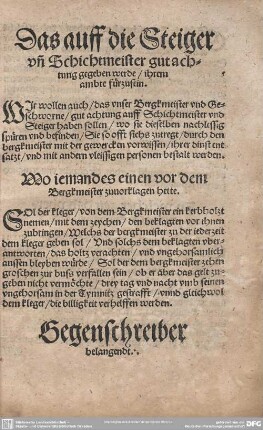 Das auff die Steiger
vñ Schichtmeister gut ach-
tung gegeben werde / ihrem
ambte fürzusein.
WIr wollen auch / das vnser Bergkmeister vnd Ge-
schworne / gut achtung auff Schichtmeister vnd
Steiger haben sollen / wo sie dieselben nachlessig
spüren vnd befinden / Sie so offt siehs zutregt / durch den
bergkmeister mit der gewercken vorwissen / ihrer dinst ent
satzt / vnd mit andern vleissigen personen bestalt werden.
Wo iemandes einen vor dem
Bergkmeister zuuorklagen hette.
SOl der kleger / von dem Bergkmeister ein kerbholtz
nemen / mit dem zeychen / den beklagten vor ihnen
zubringen / Welchs der bergkmeister zu der jederzeit
dem kleger geben sol / Vnd solchs dem beklagten vber-
antworten / das holtz verachten / vnd vngehorsamlich
aussen bleyben würde / Sol der dem bergkmeister zehen
groschen zur buss verfallen sein / ob er aber das gelt zu-
geben nicht vermöchte / drey tag vnd nacht vmb seinen
vngehorsam in der Temnitz gestrafft / vnnd gleichwol
dem kleger / die billigkeit verhelffen werden.
Gegenschreiber
belangendt.